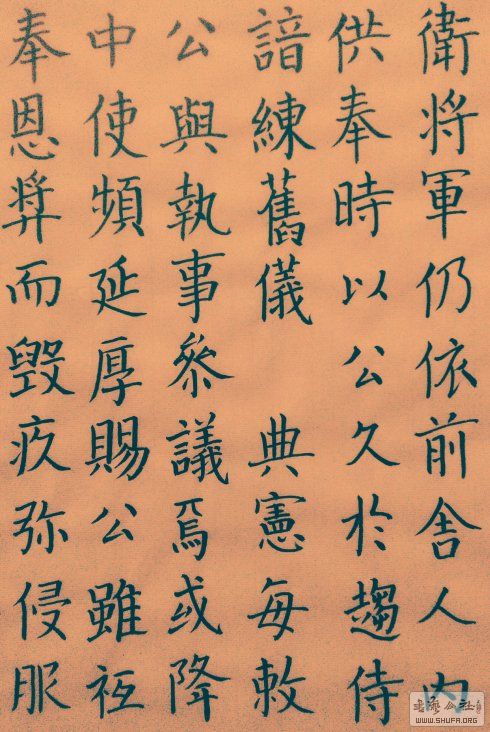 衛將軍仍依前舍人内
供奉時以公久於趨侍
諳練舊儀 典憲每敕
公與執事參議焉或降
中使頻延厚賜公雖祗
奉恩奬而毀疚弥侵服
书法公社
WWW.SHUFA.ORG